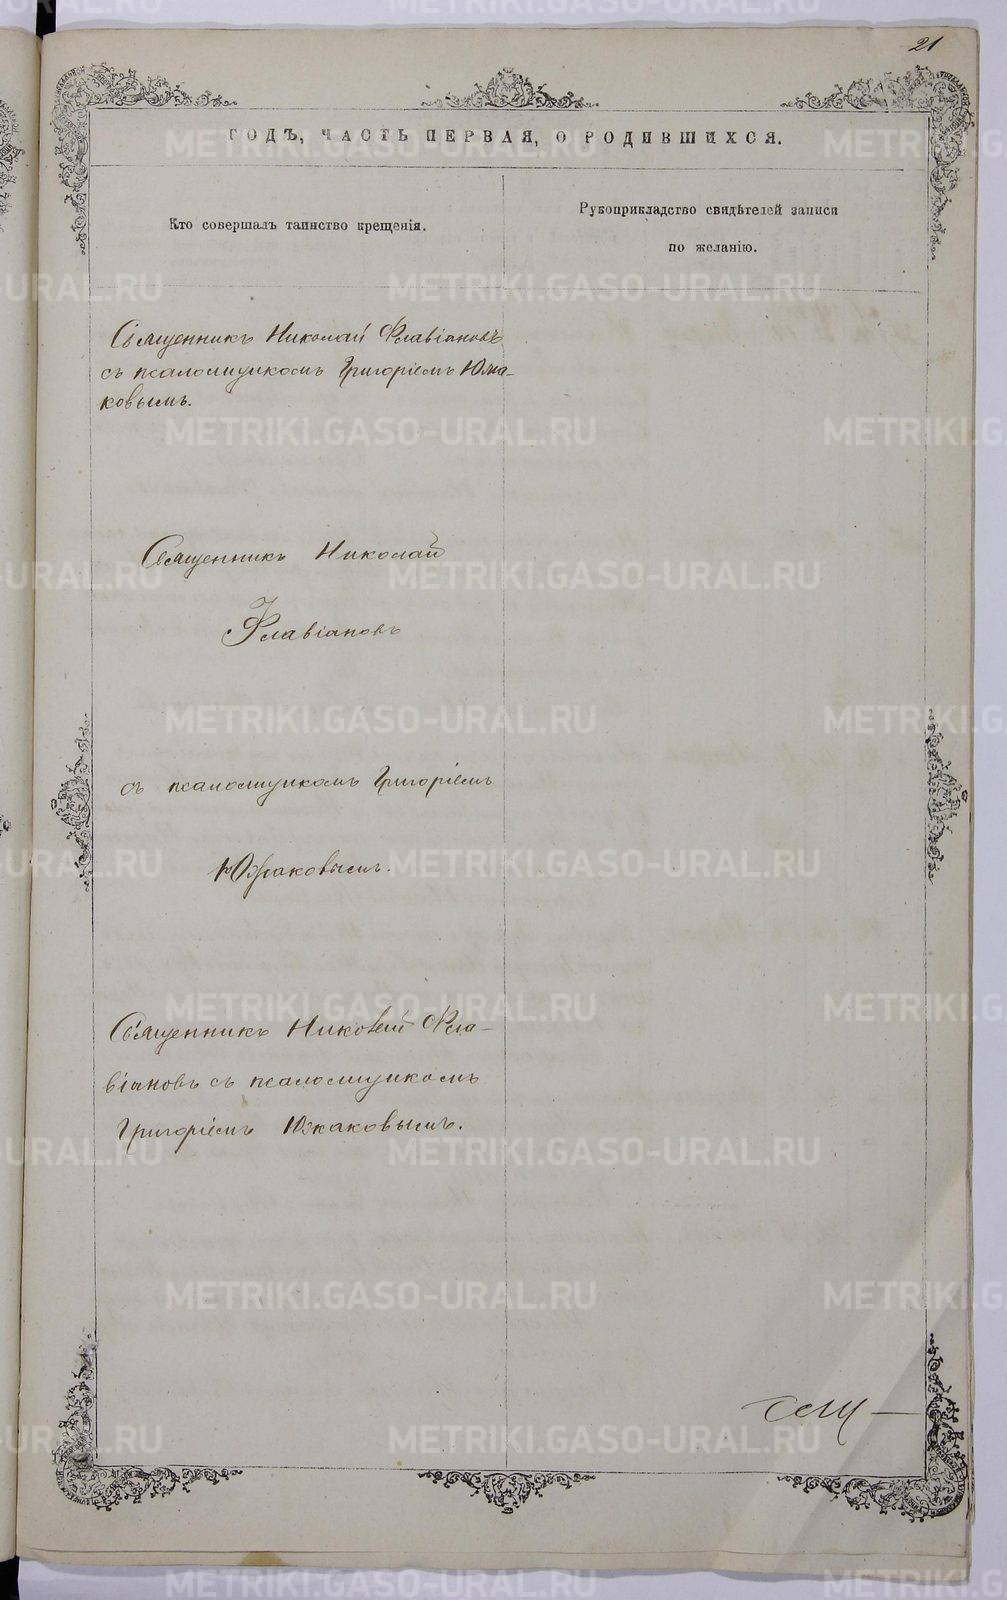 21
ГОДЪ, ЧАСТЬ ПЕРВАЯ, О РОДИВШИХСЯ.
Кто совершалъ таинство крещенія.
Рукоприкладство свидѣтелей записи
по желанію.
Священникъ Николай Флавіановъ
съ псаломщикомъ Григоріемъ Южа-
ковымъ.
Священникъ Николай
Флавіановъ
съ псаломщикомъ Григоріемъ
Южаковымъ.
Священникъ Николай Фла-
віановъ съ псаломщикомъ
Григоріемъ Южаковымъ.
METRIKI.GASO-URAL.RU